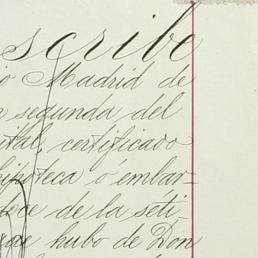 scribe
Madrid de
segunda del
certificado
hipoteca ó embar-
doce de la seti-
hubo de Don